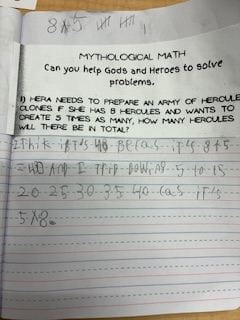 8×5
MYTHOLOGICAL MATH
Can you help Gods and Heroes to solve
problems.
1) HERA NEEDS TO PREPARE AN ARMY OF HERCULE
CLONES IF SHE HAS 8 HERCULES AND WANTS TO
CREATE 5 TIMES AS MANY, HOW MANY HERCULES
WILL THERE BE IN TOTAL?
I thik 40 Becas it's 8+5
=40 AnD I 5 10 15
20 25 30 35 40 Cas it's
5×8.